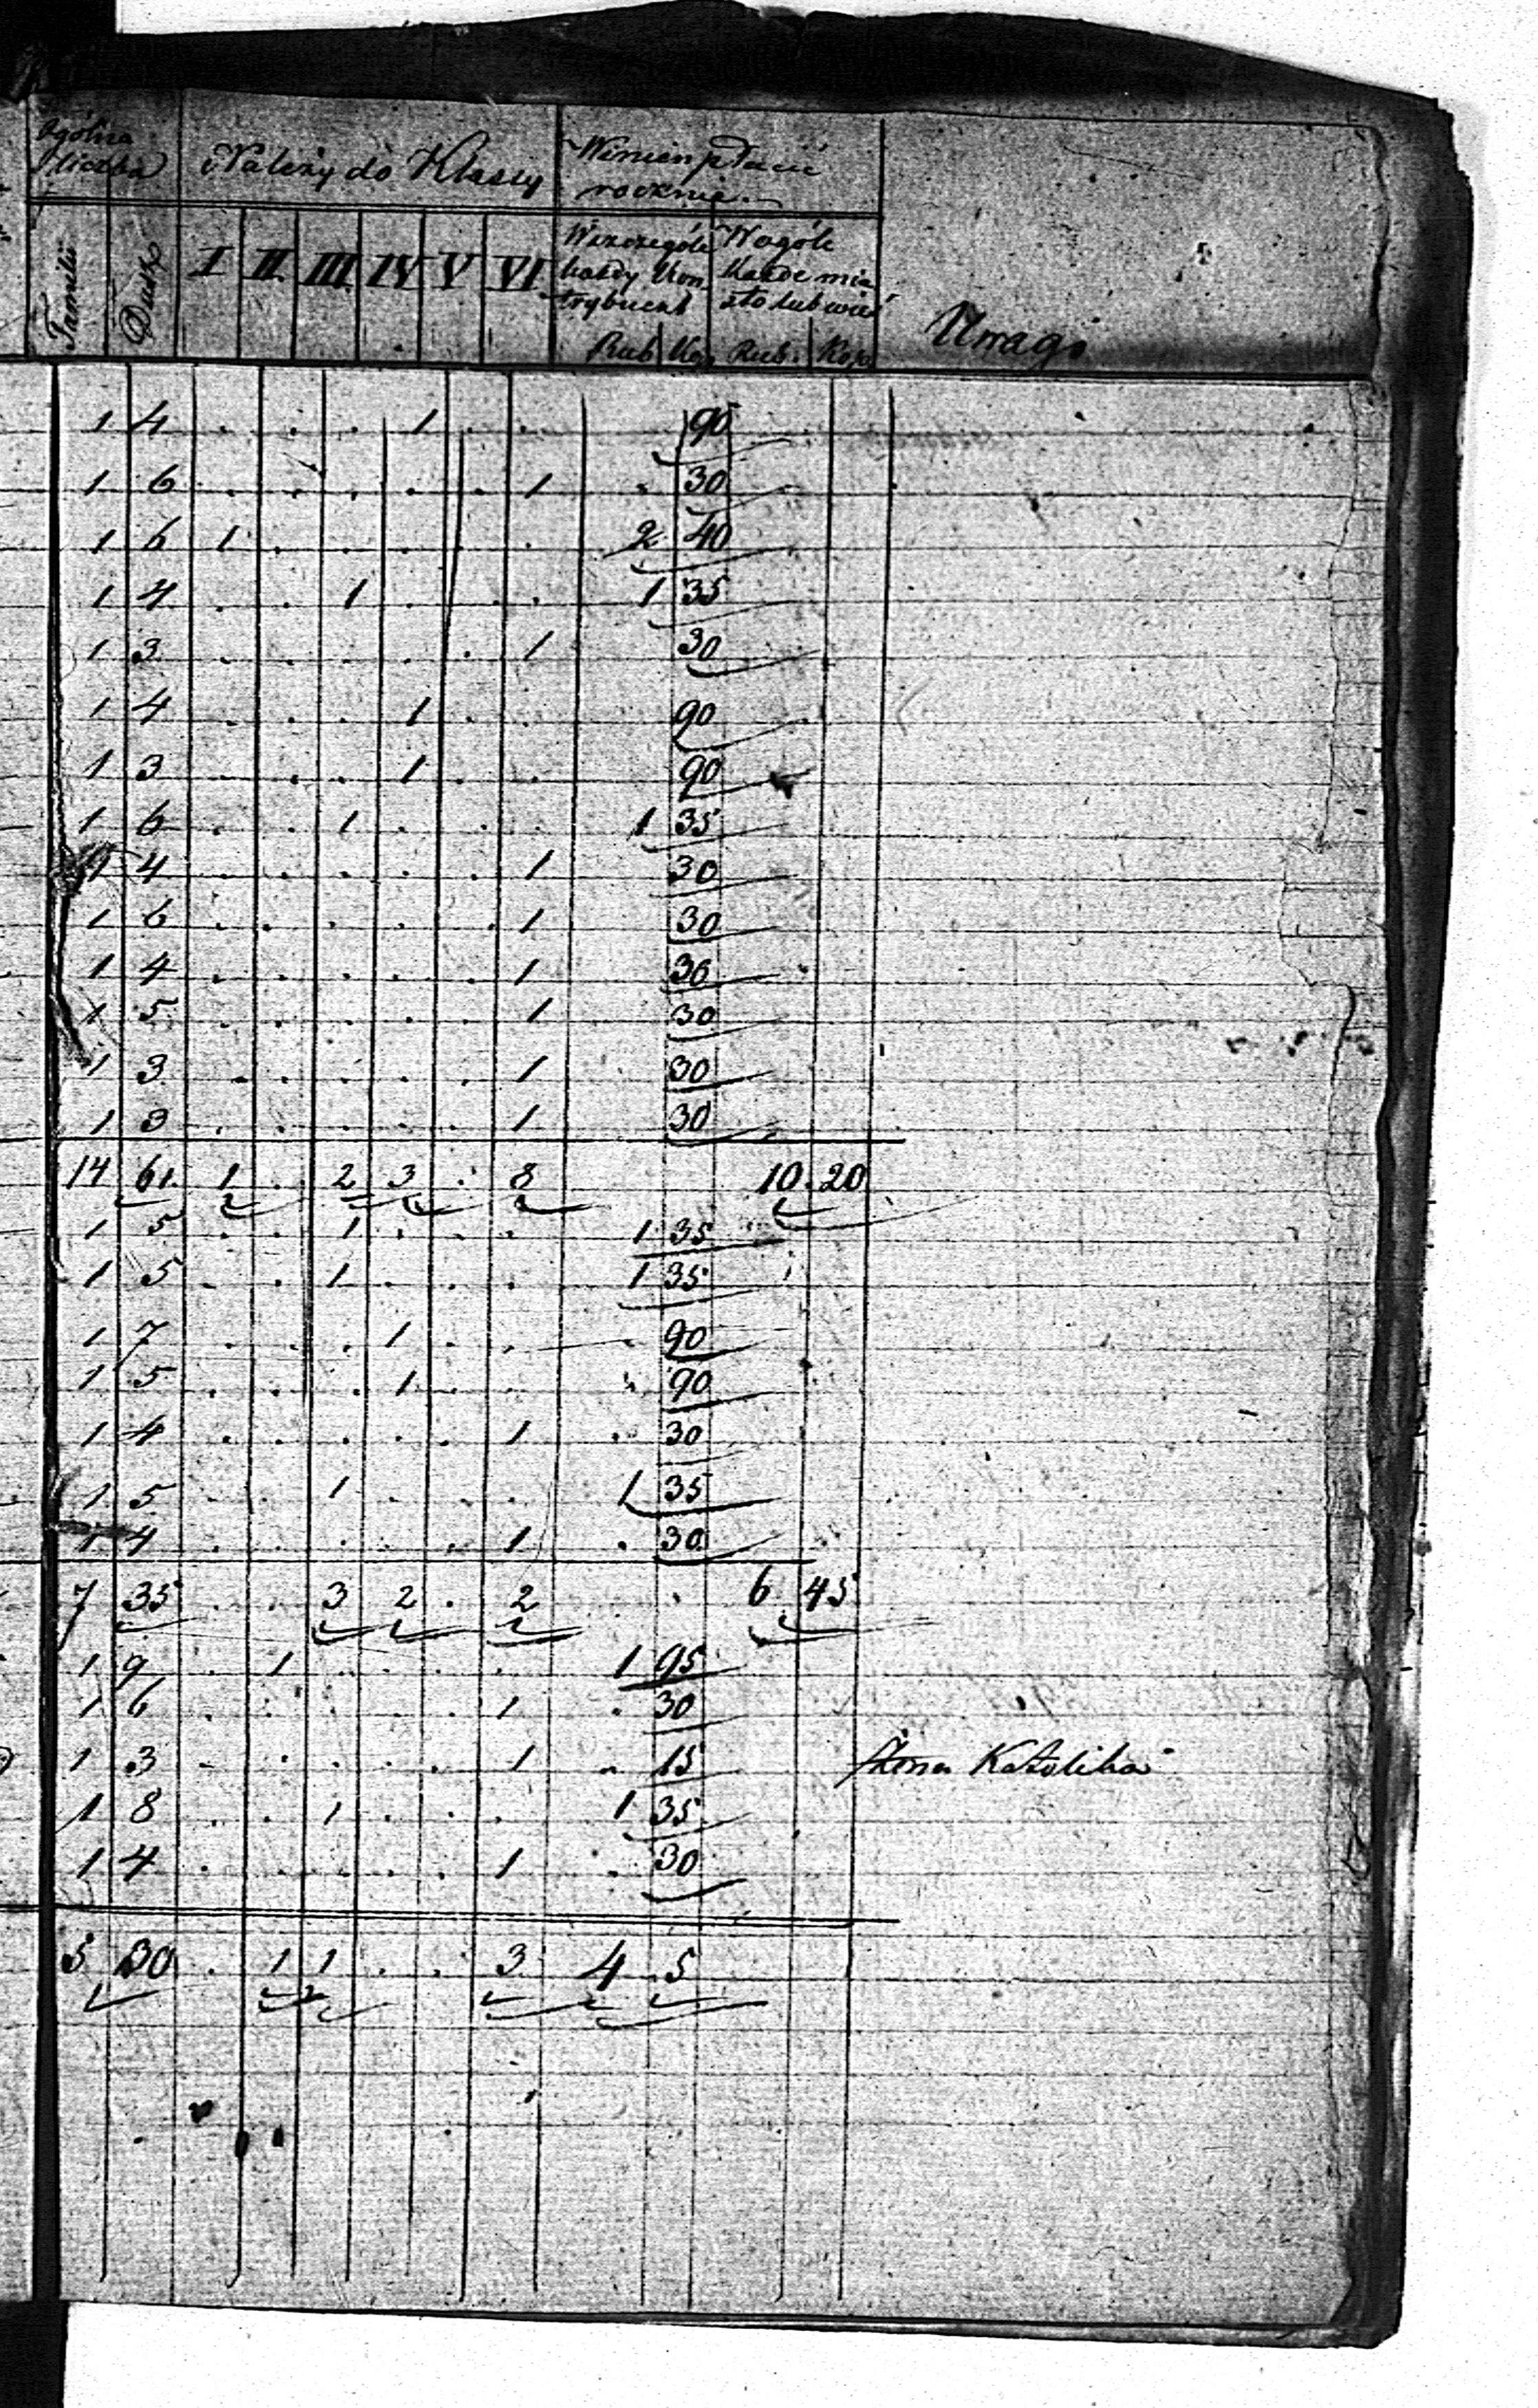 Ogólna liczba
Należy do Klassy
Winien płacić
rocznie.
Familii
Dusz
I II III IV V VI
Wszczególe
każdy Kon
trybuent
Wogóle
Każde mia
sto lub wieś
Rub Kop Rub. Kop.
Uwagi
1 4 . . . 1 . . 90
1 6 . . . . . 1 . 30
1 6 1 . . . . . 2 40
1 4 . . 1 . . . 1 35
1 3 . . . . . 1 30
1 4 . . . 1 . . 90
1 3 . . . 1 . . 90
1 6 . . 1 . . . 1 35
1 4 . . . . . 1 30
1 6 . . . . . 1 30
1 4 . . . . . 1 30
1 5 . . . . . 1 30
1 3 . . . . . 1 30
1 3 . . . . . 1 30
14 61 1 . 2 3 . 8 10.20
1 5 . . 1 . . . 1 35
1 5 . . 1 . . . 1 35
1 7 . . . 1 . . . 90
1 5 . . . 1 . . 90
1 4 . . . . . 1 . 30
1 5 . . 1 . . . 1 35
1 4 . . . . . 1 . 30
7 35 . . 3 2 . 2 6 45
1 9 . 1 . . . . 1 95
1 6 . . . . . 1 . 30
1 3 . . . . . 1 . 15 Żona Katoliczka
1 8 . . 1 . . . 1 35
1 4 . . . . . 1 . 30
5 30 . 1 1 . . 3 4 5